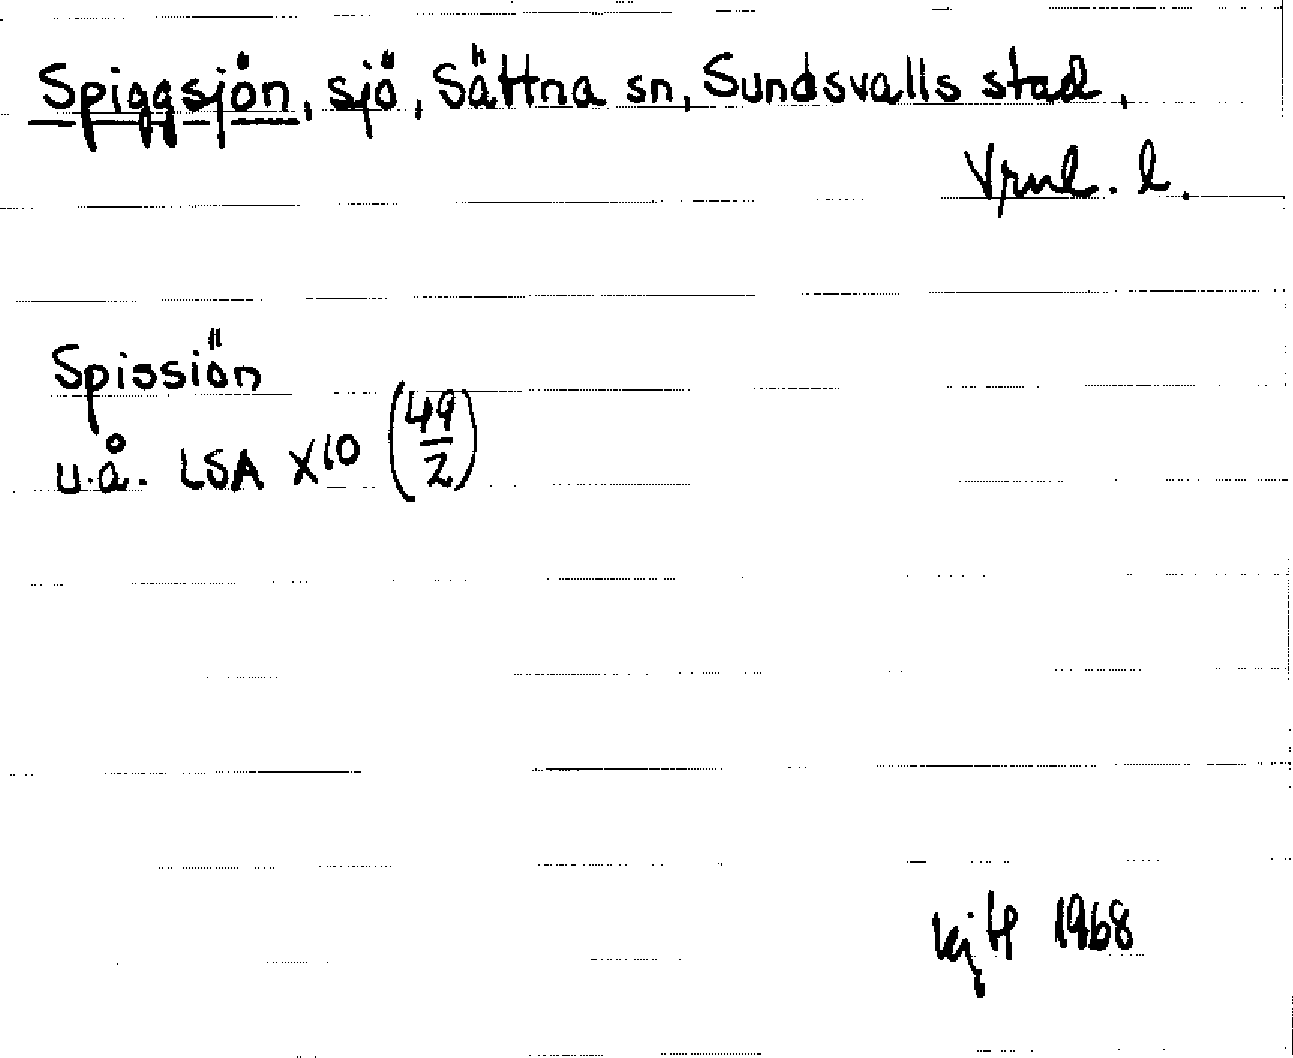 Spiggsjön, sjö, Sättna sn, Sundsvalls stad,
Vrnl. l.
Spissiön
u.å. LSA X10 (49/2)
1968